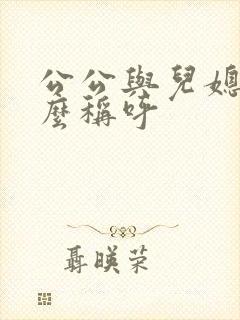 公公與兒媳
麼稱呼
聶暎荣